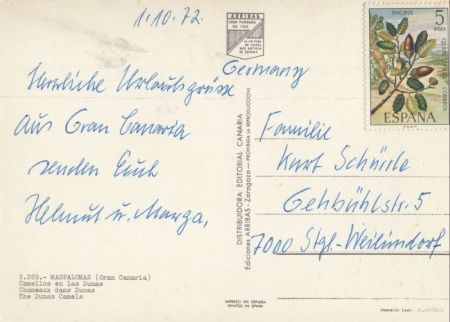 1.10.72
ARRIBAS
Herzliche Urlaubsgrüsse
Aus Gran Canaria
senden Euch
Helmut u. Marga,
2.269.- MASPALOMAS (Gran Canaria)
Camellos en las Dunas
Chameaux dans Dunas
The Dunas Camels
DISTRIBUIDORA EDITORIAL CANARIA
Ediciones ARRIBAS - Zaragoza - PROHIBIDA LA REPRODUCCION
IMPRESO EN ESPAÑA
PRINTED IN SPAIN
ENCINA
5
PTAS
CORREOS
ESPAÑA
Germany
Familie
Kurt Schürle
Gehbühlstr. 5
7000 Stgt.-Weilimdorf
Deposito Legal